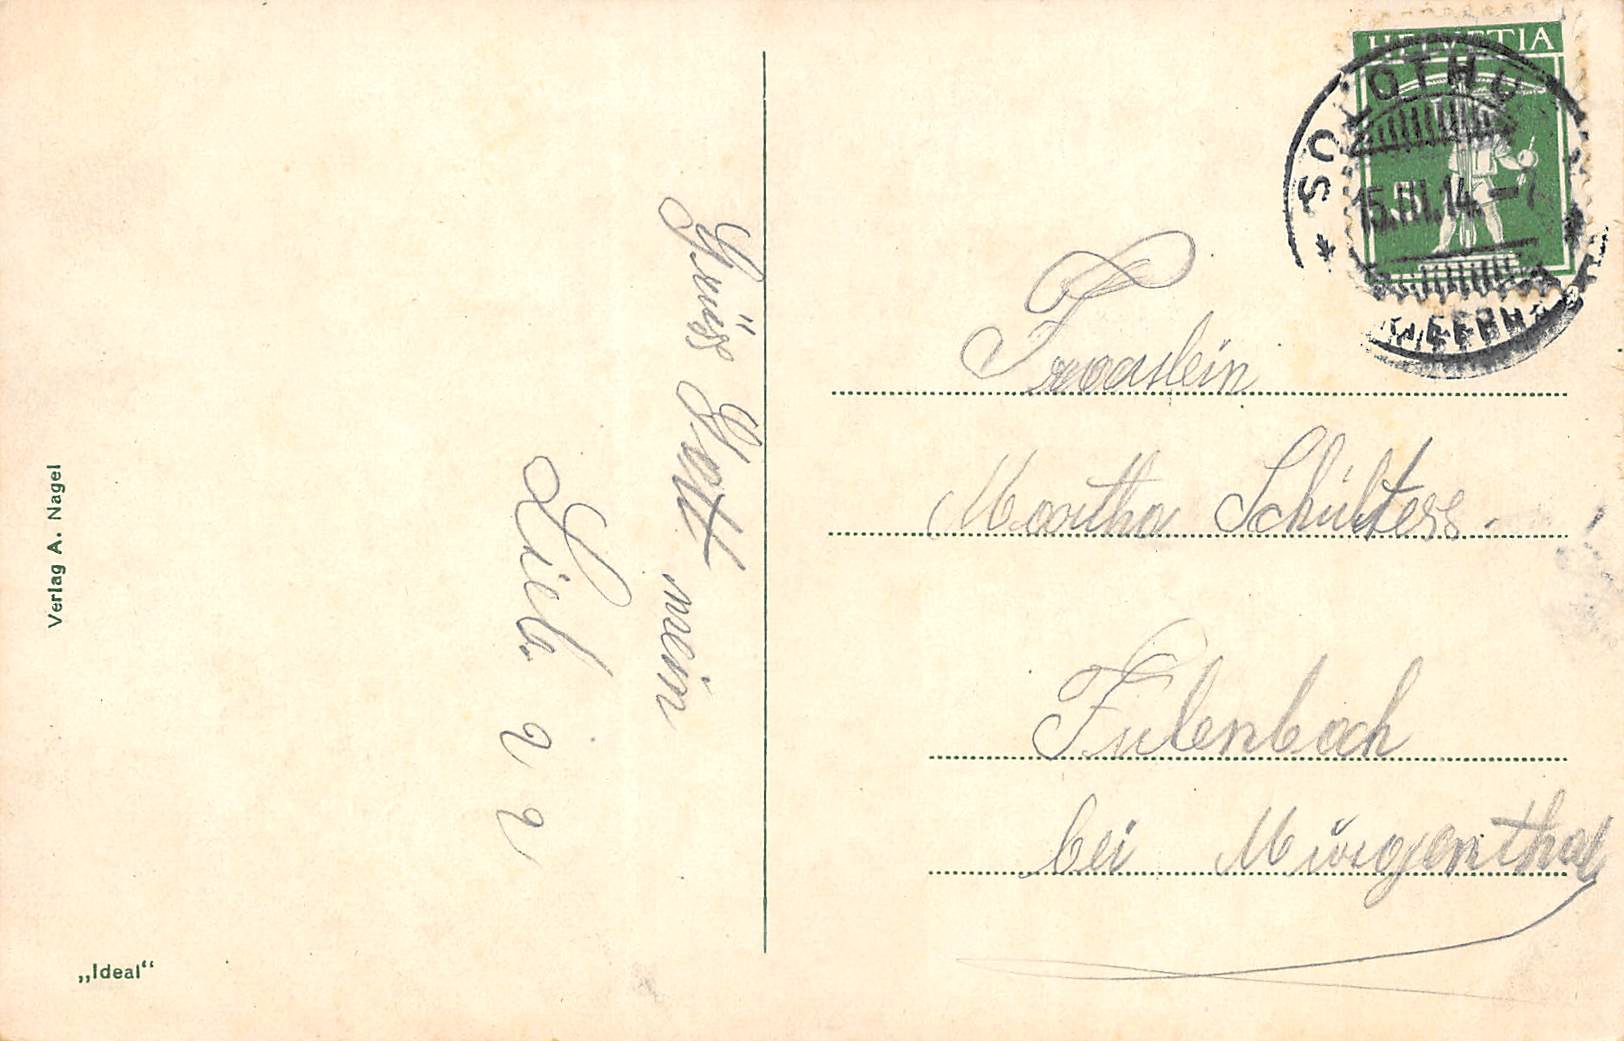 Verlag A. Nagel
„Ideal“
Grüss Gott mein
Lieb.
HELVETIA
SOLOTHU
15.III.14.–7
Fraulein
Martha Schülters.
Fulenbach
bei Murgenthal